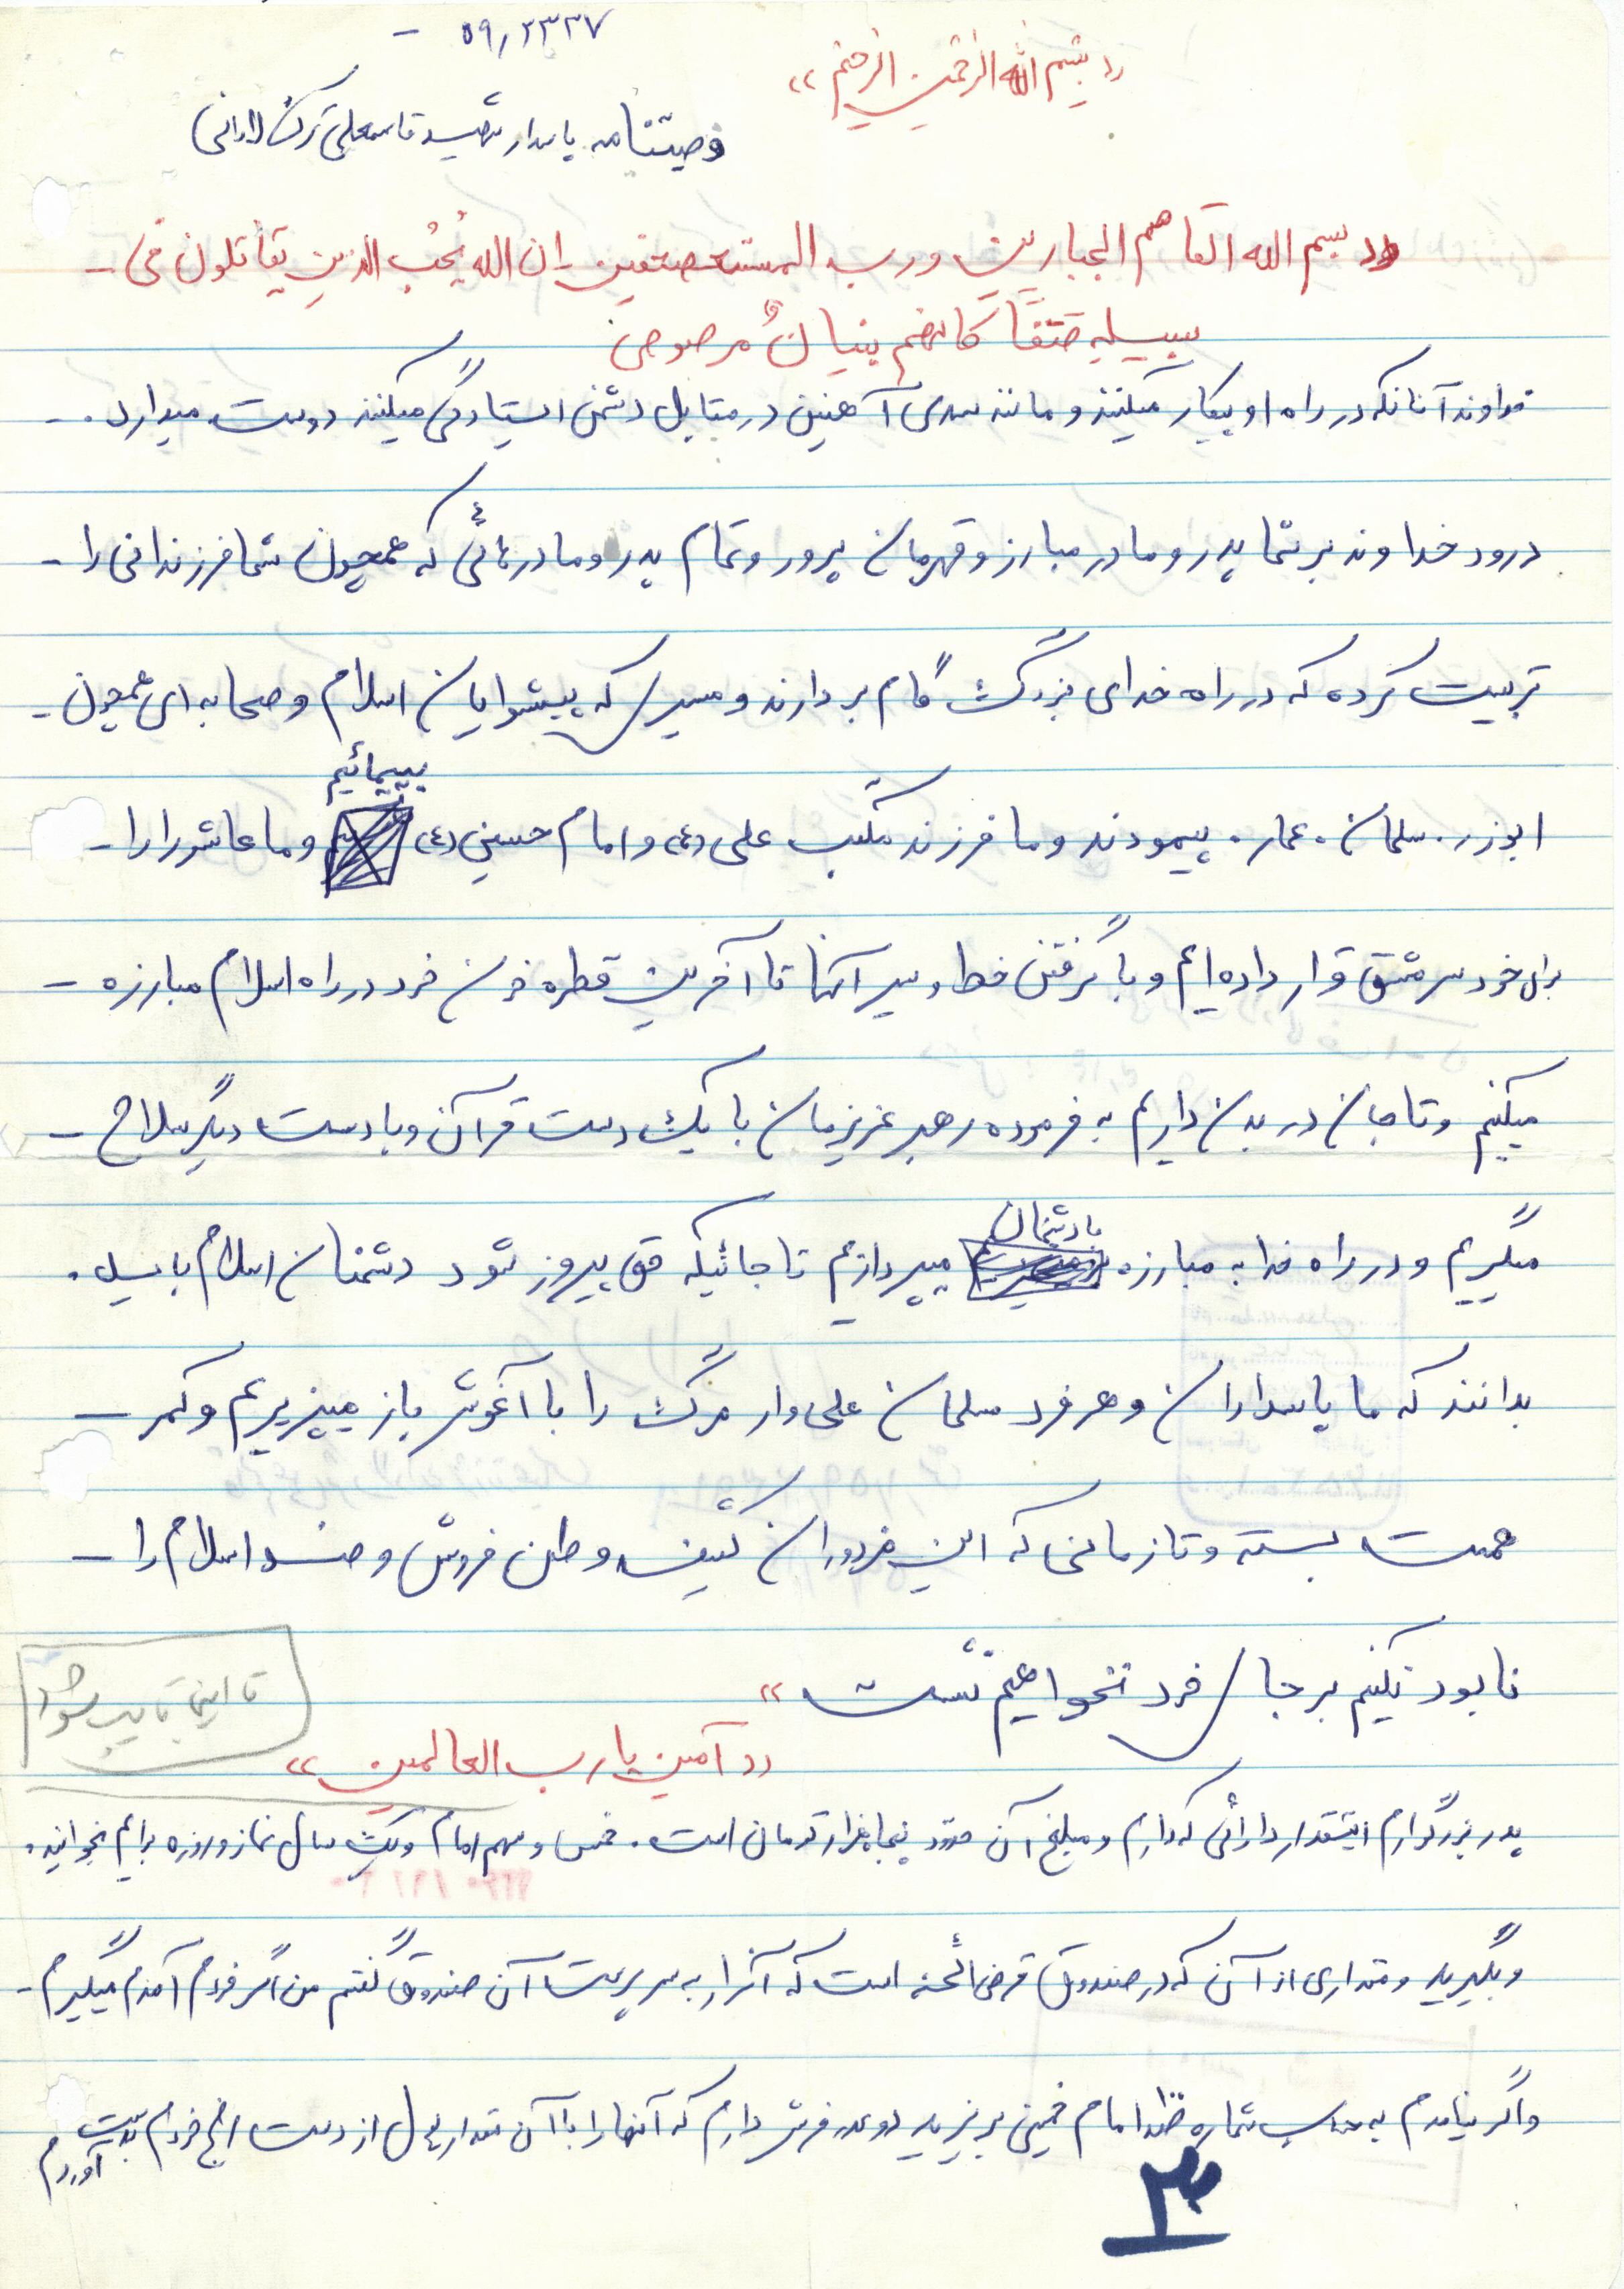 ۵۹,۲۳۳۷ -
«بسم الله الرحمن الرحیم»
وصیتنامه پاسدار شهید قاسمعلی ترک لادانی
«بسم الله القاصم الجبارین و رب المستضعفین ان الله یحب الذین یقاتلون فی -
سبیله صَفّاً کانهم بنیانٌ مرصوص
خداوند آنانکه در راه او پیکار میکنند و مانند سدی آهنین در مقابل دشمن ایستادگی میکنند دوست میدارد. -
درود خداوند بر شما پدر و مادر مبارز و قهرمان پرور و تمام پدر و مادرهائی که همچون شما فرزندانی را -
تربیت کرده که در راه خدای بزرگ گام بردارند و مسیری که پیشوایان اسلام و صحابه ای همچون -
بپیمائیم
ابوذر. سلمان. عمار. پیمودند و ما فرزند مکتب علی (ع) و امام حسین (ع) و ما عاشورا را -
برای خود سرمشق قرار داده ایم و با گرفتن خط و سیر آنها تا آخرین قطره خون خود در راه اسلام مبارزه -
میکنیم و تا جان در بدن داریم به فرموده رهبر عزیزمان با یک دست قرآن و با دست دیگر سلاح -
با دشمنان
میگیریم و در راه خدا به مبارزه میپردازیم تا جائیکه حق پیروز شود دشمنان اسلام بایسد.
بدانند که ما پاسداران و هر فرد مسلمان علی وار مرگ را با آغوش باز میپذیریم و کمر -
همت بسته و تا زمانی که این مزدوران کثیف و وطن فروش و ضد اسلام را -
نابود نکنیم بر جای خود نخواهیم نشست»
تا اینجا تایپ شود
«آمین یا رب العالمین»
پدر بزرگوارم اینقدار دارائی که دارم و مبلغ آن حدود پنجاهزار تومان است. خمس و سهم امام و یک سال نماز و روزه برایم بخوانید.
و بگیرید و مقداری از آن که در صندوق قرض الحسنه است که آنرا به سرپرست آن صندوق گفتم من اگر خودم آمدم میگیرم -
و اگر نیامدم به حساب شماره ۱۰۰ امام خمینی بریزید دو عدد فرش دارم که آنها را با آن مقدار پول از دست رنج خودم بدست
آوردم